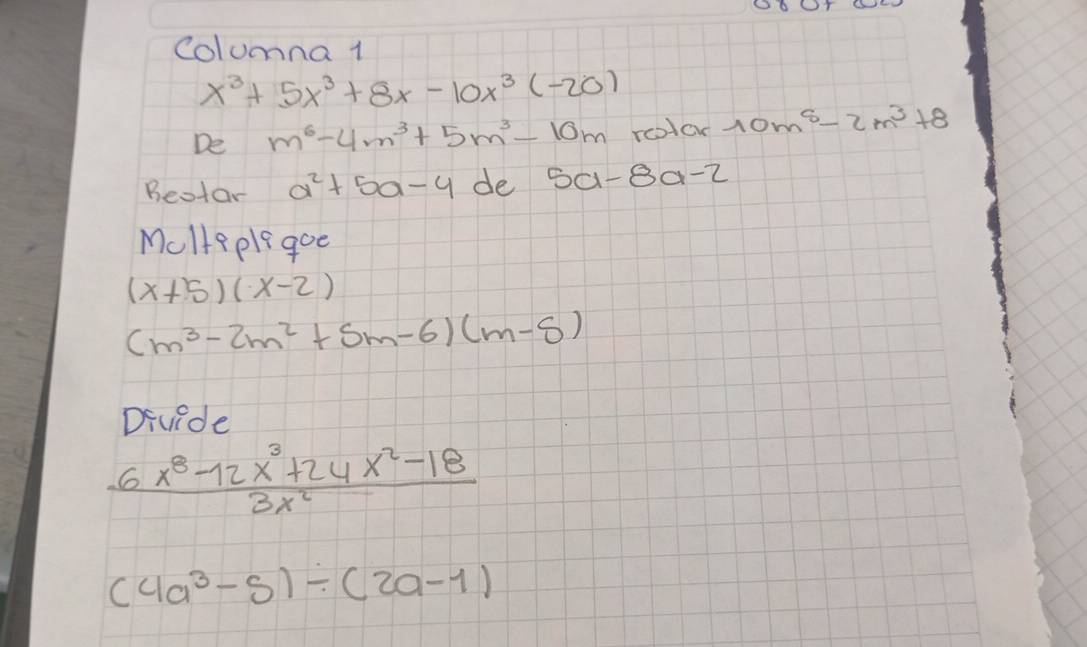 Columna 1
x³ + 5x³ + 8x - 10x³ (-20)
De m⁶ - 4m³ + 5m³ - 10m restar 10m⁵ - 2m³ + 8
Restar a² + 5a - 4 de 5a - 8a - 2
Multiplique
(x+5)(x-2)
(m³ - 2m² + 5m - 6)(m - 5)
Divide
6x⁸ - 12x³ + 24x² - 18
3x²
(4a³ - 5) ÷ (2a - 1)